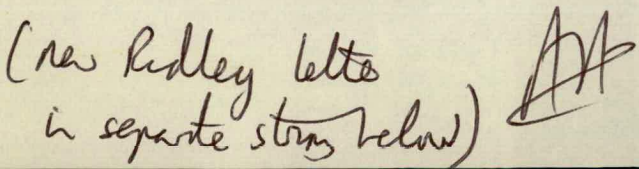 (new Ridley letter
in separate string below)